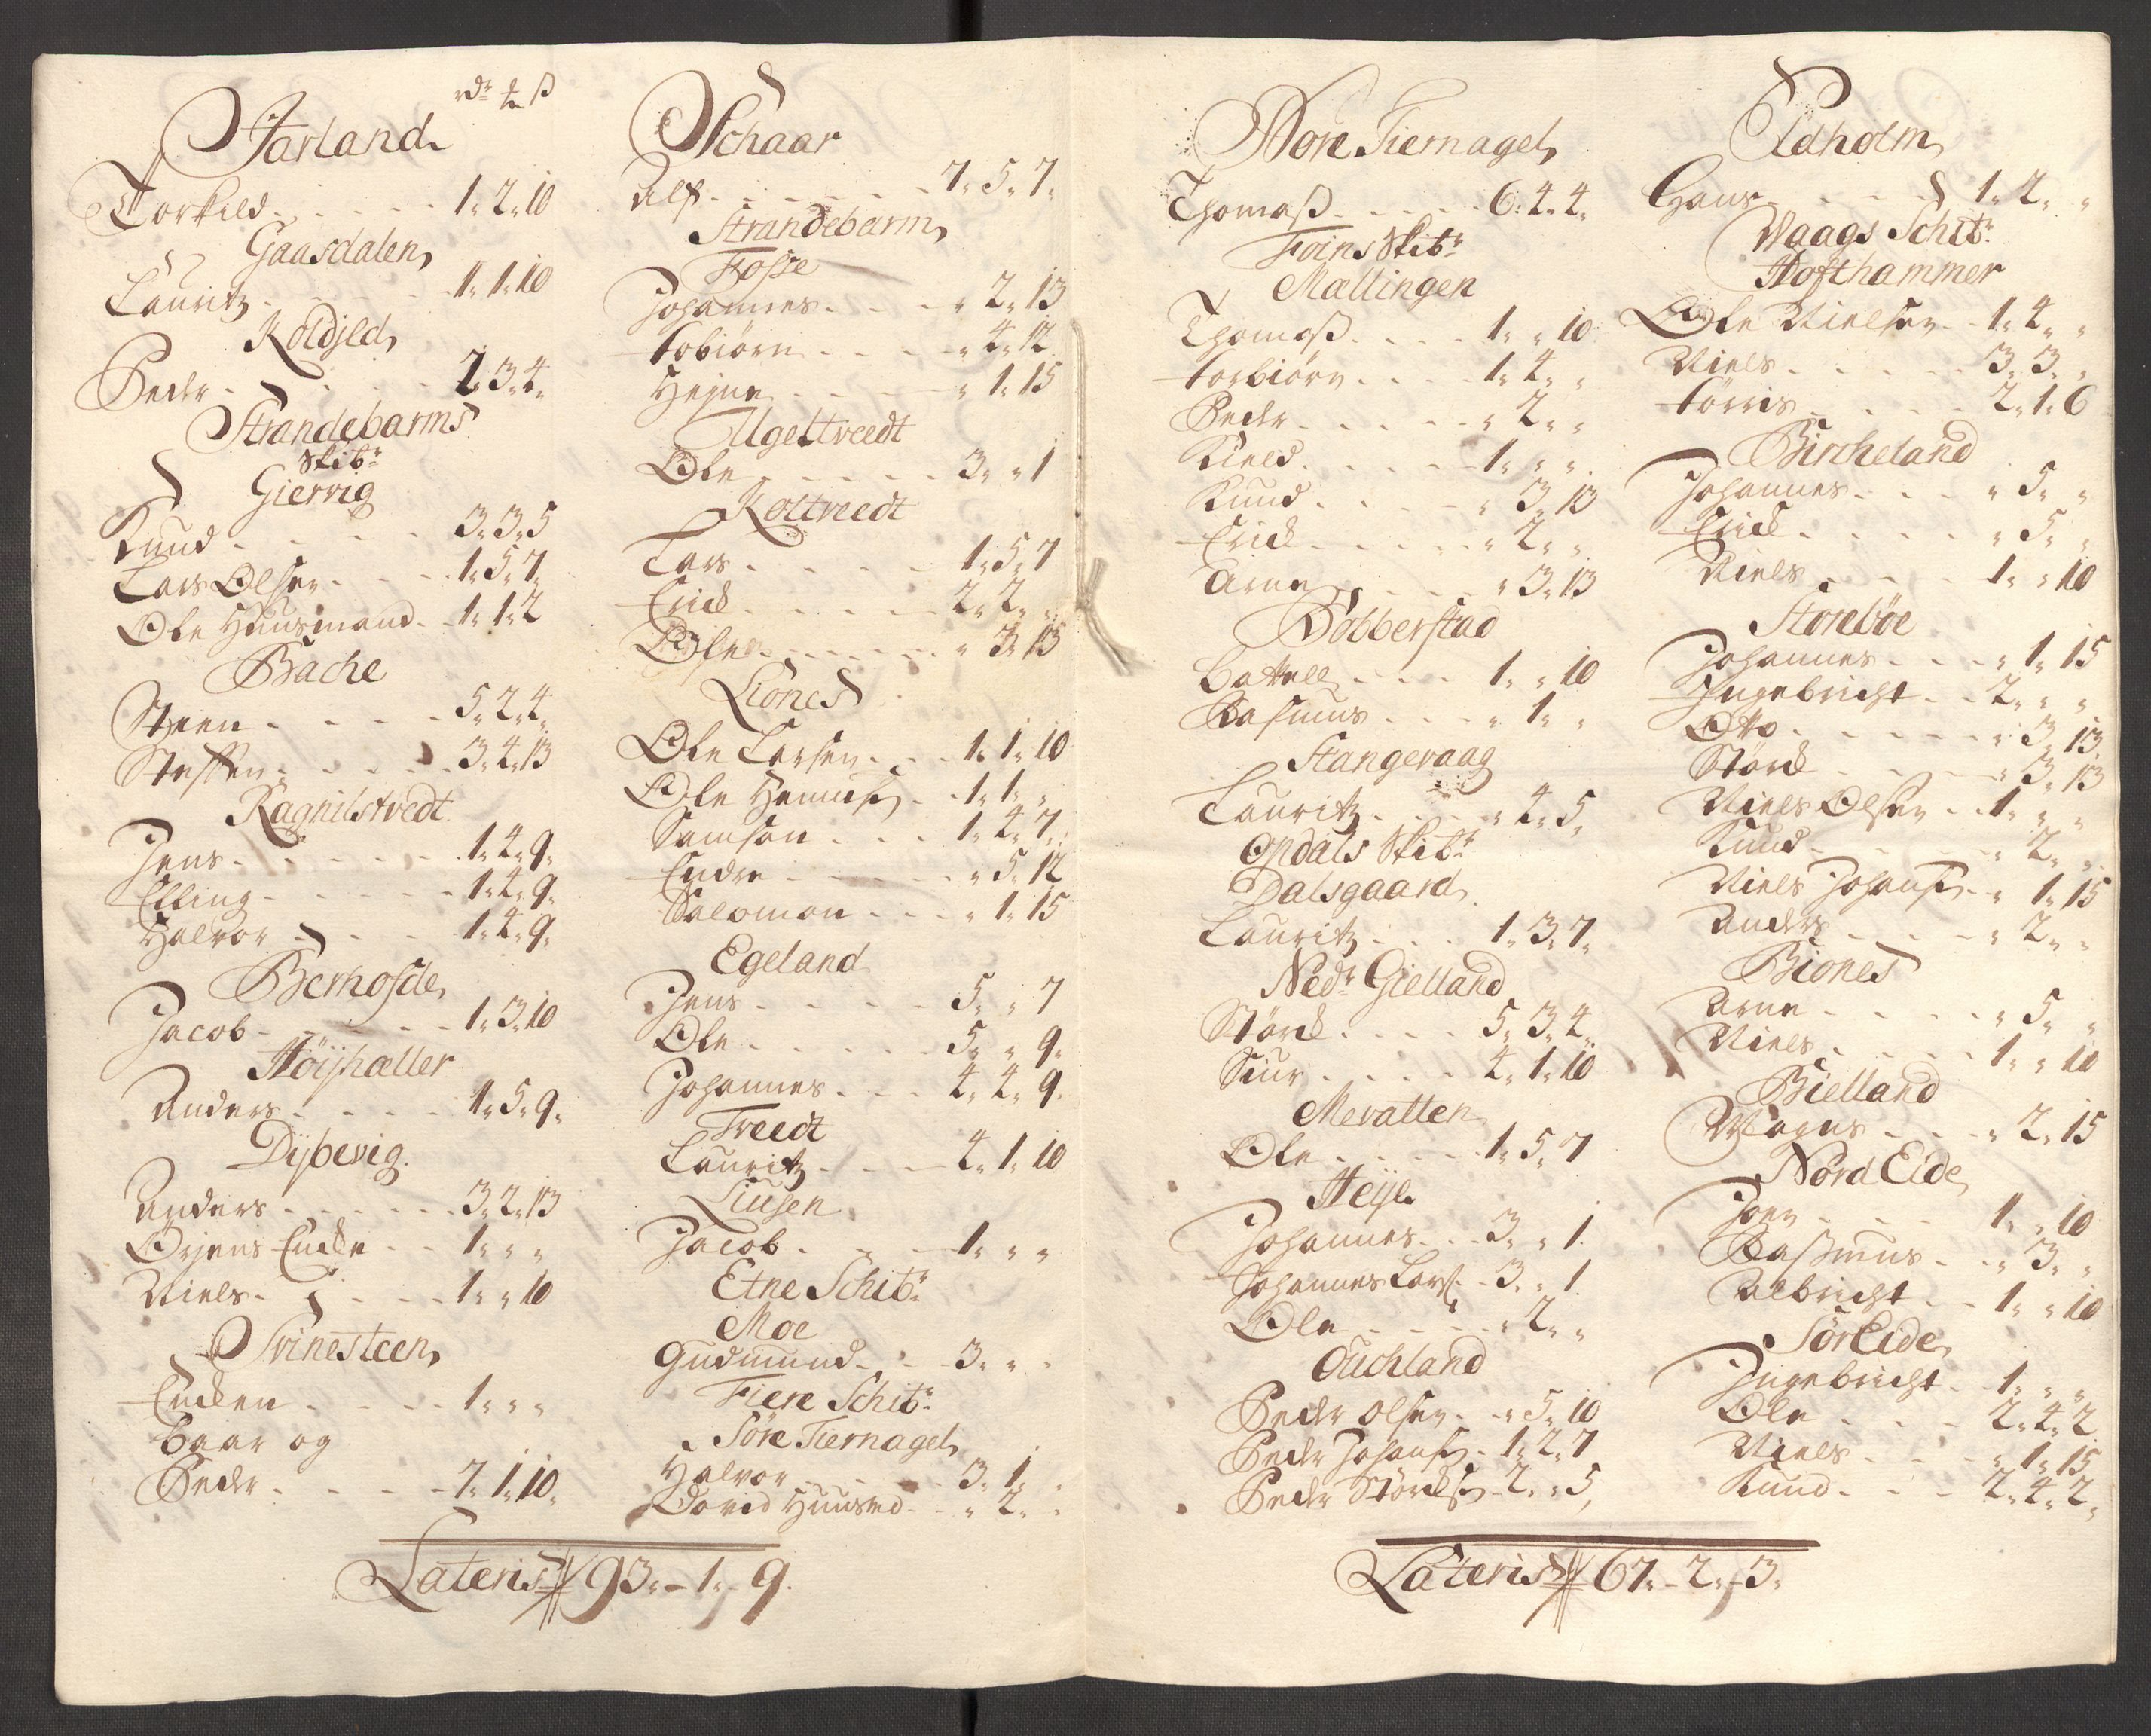 rdr ₻ ß
Jarland
Torkild - - - - - 1" 2" 10
Gaasdalen
Lauritz - - - - 1" 1" 10
Koldild
Peder - - - - - 2" 3" 4"
Strandebarms
Skibr
Giervig
Knud - - - - 3" 3" 5
Lars Olsen - - - 1" 5" 7"
Ole Huusmand - - 1" 1" 2
Bache
Steen - - - - 5" 2" 4"
Steffen - - - - 3" 4" 13
Ragnilstvedt
Jens - - - - - 1" 4" 9"
Elling - - - - - 1" 4" 9"
Halvor - - - - 1" 4" 9"
Berhofde
Jacob - - - - - 1" 3" 10
Høijhaller
Anders - - - - 1" 5" 9"
Dijbevig
Anders - - - - - 3" 2" 13
Ørjens Encke - - 1" " "
Niels - - - - - 1" " 10
Svinesteen
Encken - - - - 1" " "
Baar og
Peder - - - - - 7" 1" 10"
Schaar
Alf - - - - - - 7" 5" 7"
Strandebarm
Fosse
Johannes - - - - " 2" 13
Tobiørn - - - - " 4" 12
Heine - - - - " 1" 15
Ugeltveedt
Ole - - - - - 3" " 1
Koltveedt
Lars - - - - - 1" 5" 7
Erick - - - - - 2" 2" "
Ole - - - - - - " 3" 13
Liones
Ole Larsen - - - 1" 1" 10
Ole Hemmis - - 1" 1" "
Samson - - - 1" 4" 7"
Endre - - - - - " 5" 12
Salomon - - - " 1" 15
Egeland
Jens - - - - - 5" " 7
Ole - - - - - 5" " 9"
Johannes - - - 4" 4" 9"
Tvedt
Lauritz - - - - 4" 1" 10
Liusen
Jacob - - - - 1" " "
Etne Schibr
Moe
Gudmund - - - 3" " "
Fiere Schibr
Søre Tiernagel
Halvor - - - - 3" 1" "
David Huusmd - - " 2" "
Lateris 93"-1"-9.
Nore Tiernagel
Thomas - - - - - 6" 4" 4"
Foins Skibr
Mællingen
Thomas - - - - 1" " 10
Torbiørn - - - - 1" 4" "
Peder - - - - - " 2" "
Kield - - - - - 1" " "
Knud - - - - - " 3" 13
Erick - - - - - " 2" "
Arne - - - - - " 3" 13
Bobberstad
Bottell - - - - 1" " 10
Rasmus - - - - " 1" "
Stangevaag
Lauritz - - - - " 4" 5"
Opdals Skibr
Dalsgaard
Lauritz - - - 1" 3" 7"
Nedr Gielland
Størck - - - - 5" 3" 4"
Siur - - - - - 4" 1" 10
Mevatten
Ole - - - - - 1" 5" 7
Heije
Johannes - - - 3" " 1
Johannes Lars - - 3" " 1
Ole - - - - - " 2" "
Ouchland
Peder Olsen - - " 5" 10
Peder Johans - - 1" 2" 7
Peder Størcks - - 2" " 5"
Lateris 67"-2"-3"
Eldholm
Hans - - - - - 1" 2" "
Waags Schibr
Hofthammer
Ole Nielsen - - 1" 4" "
Niels - - - - - 3" 3" "
Tørris - - - - 2" 1" 6
Bircheland
Johannes - - - " 5" "
Erick - - - - - " 5" "
Niels - - - - 1" " 10
Storebøe
Johannes - - - " 1" 15
Ingebricht - - 2" " "
Otto - - - - - " 3" 13
Størck - - - - " 3" 13
Niels Olsen - - 1" " "
Knud - - - - - " 2" "
Niels Johans - - " 1" 15
Anders - - - - " 2" "
Biones
Arne - - - - - " 5" "
Niels - - - - 1" " 10
Bielland
Magns - - - - " 2" 15
Nord Eide
Joen - - - - 1" " 10
Rasmus - - - " 3" "
Albricht - - - 1" " 10
Sør Eide
Ingebricht - - 1" " "
Ole - - - - 2" 4" 2
Niels - - - - " 1" 15
Knud - - - - 2" 4" 2"